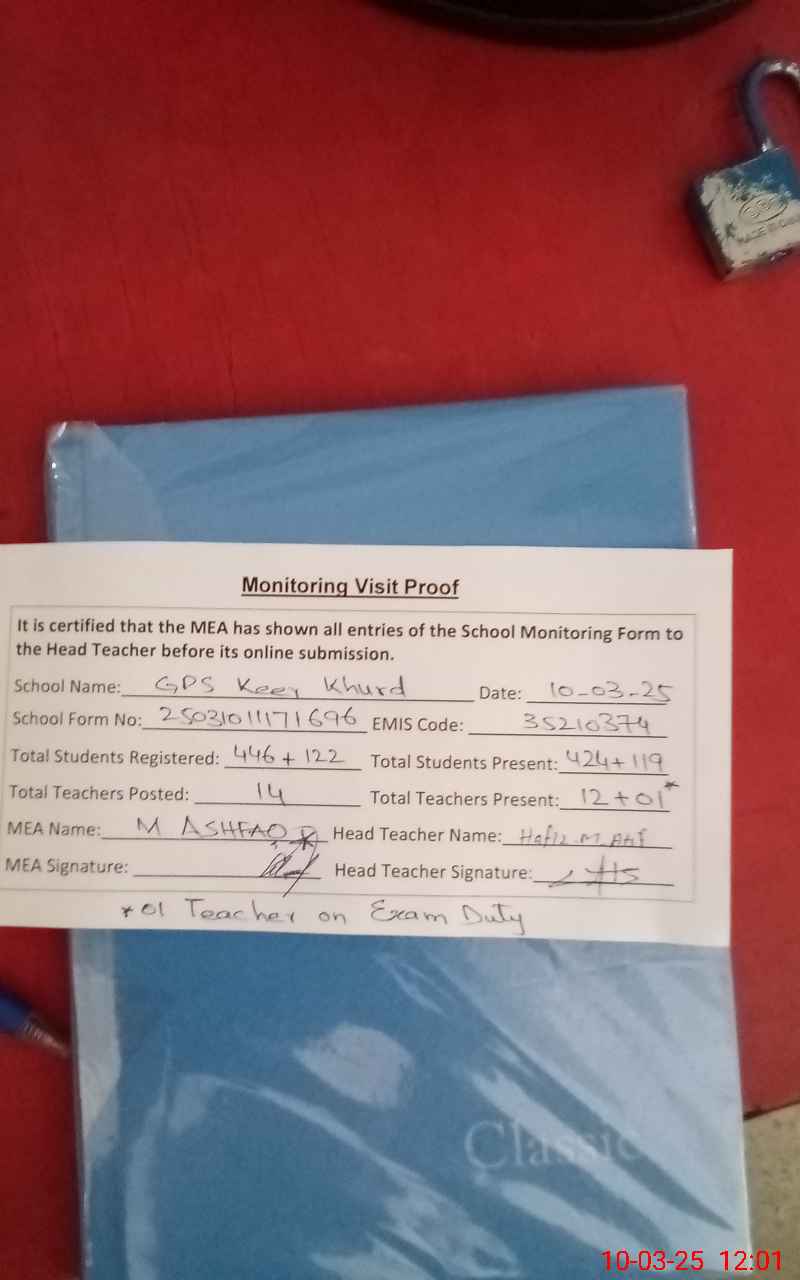 MADE IN CHINA
Monitoring Visit Proof
It is certified that the MEA has shown all entries of the School Monitoring Form to
the Head Teacher before its online submission.
School Name: GPS Keer Khurd Date: 10-03-25
School Form No: 25031011171696 EMIS Code: 35210374
Total Students Registered: 446 + 122 Total Students Present: 424 + 119
Total Teachers Posted: 14 Total Teachers Present: 12 + 01*
MEA Name: M ASHFAQ Head Teacher Name: Hafiz M
MEA Signature: Head Teacher Signature:
* 01 Teacher on Exam Duty
Classic
10-03-25 12:01